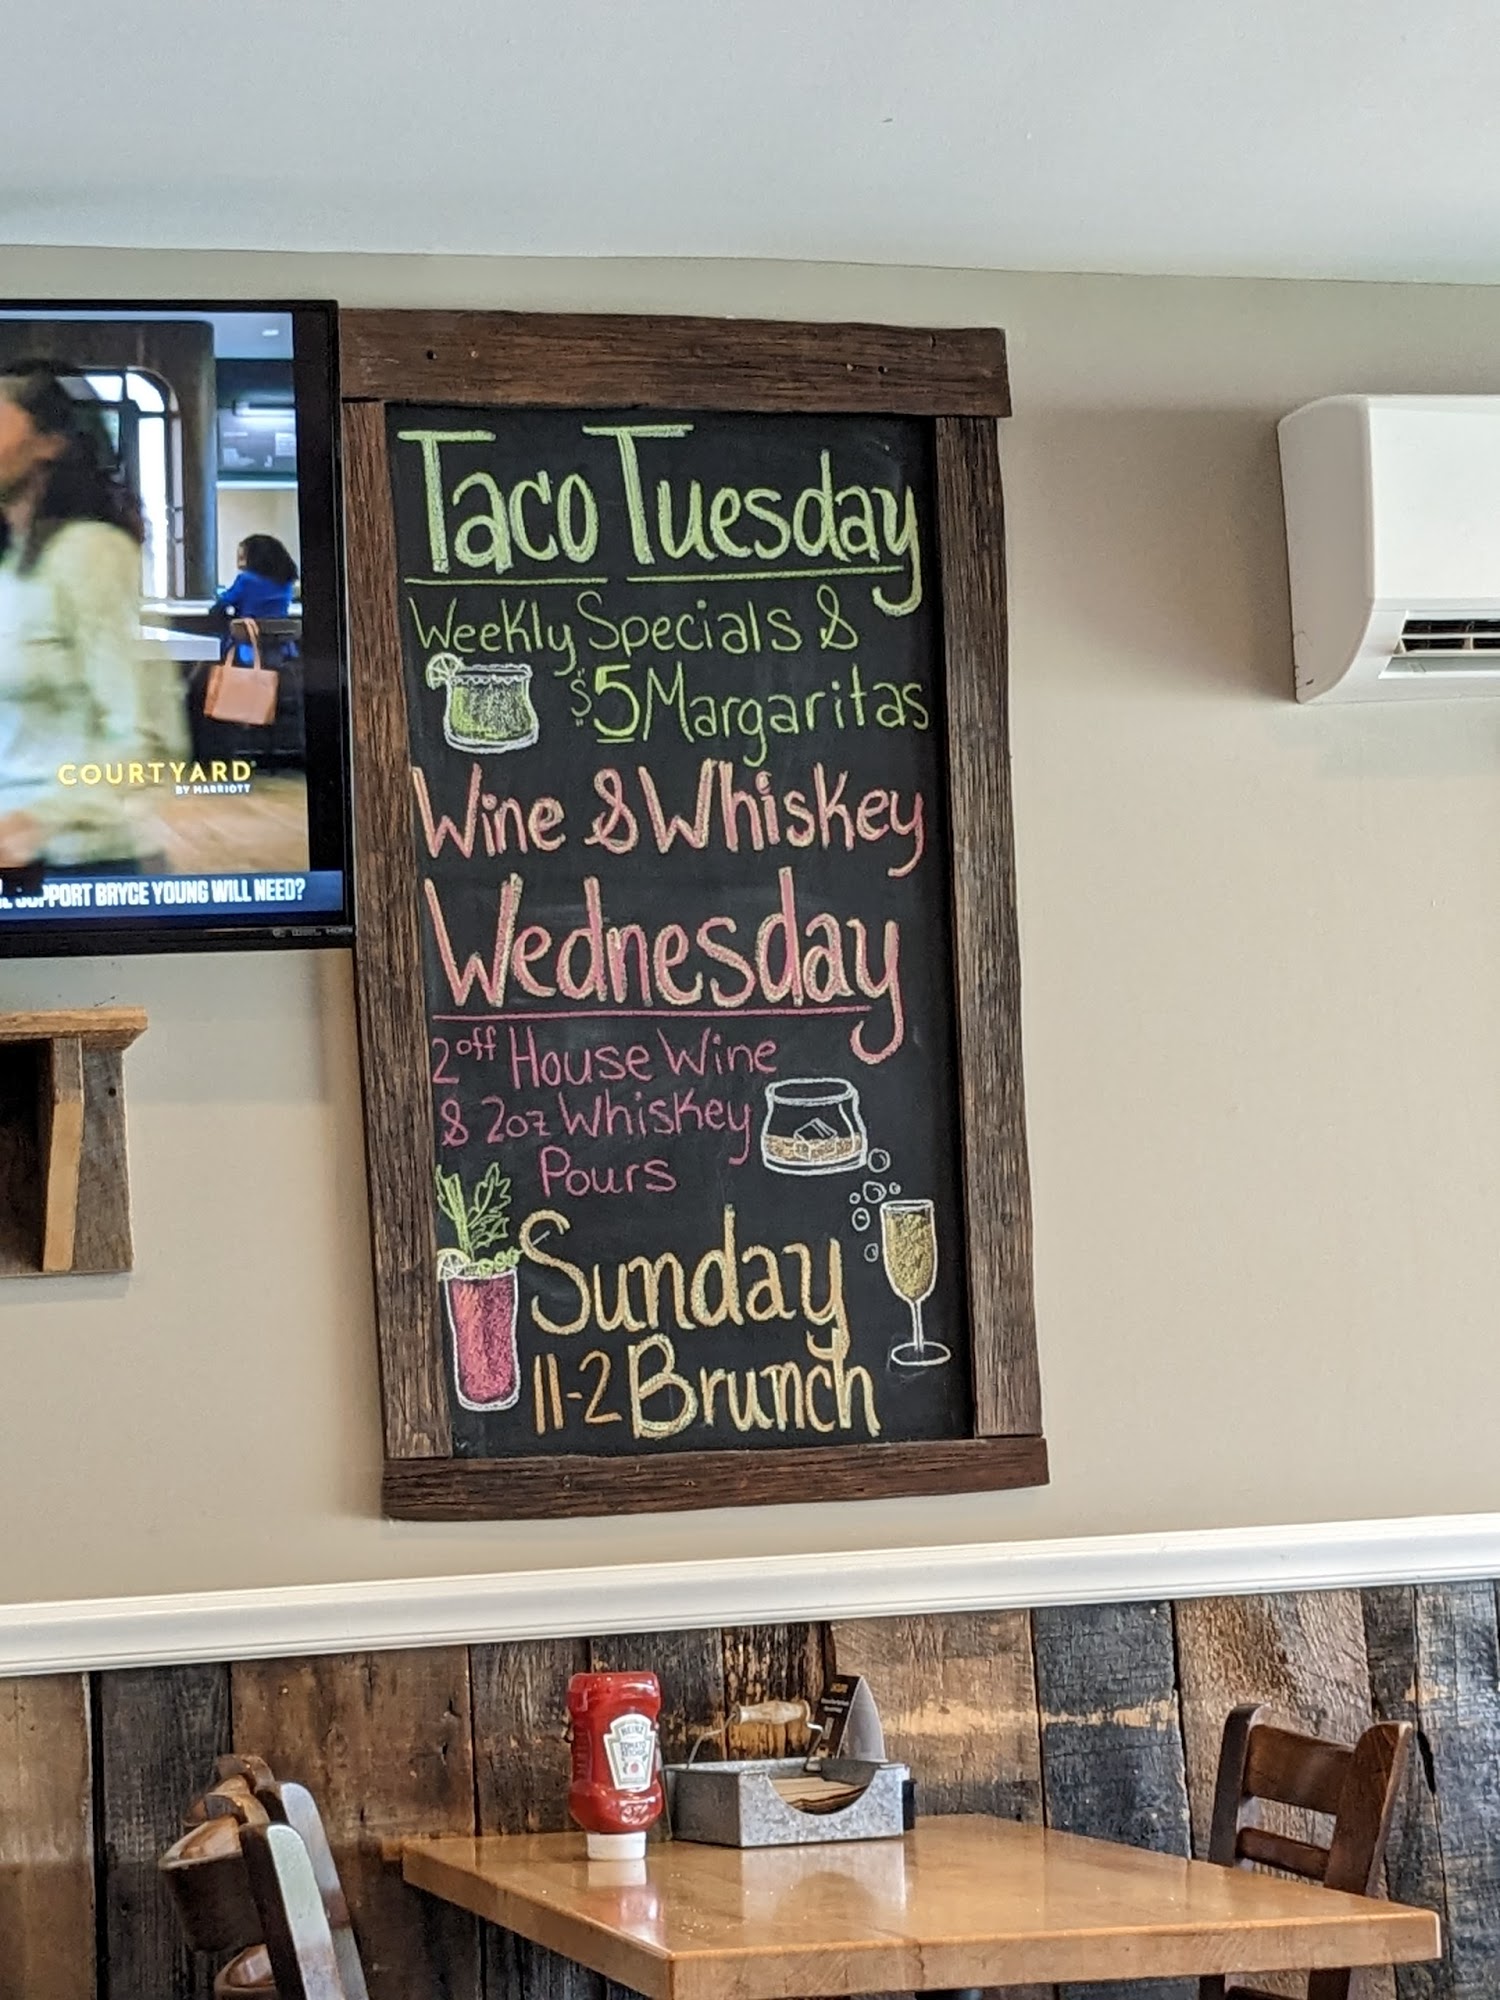 Taco Tuesday
Weekly Specials &
$5 Margaritas
Wine & Whiskey
Wednesday
2 off House Wine
& 2oz Whiskey
Pours
Sunday
11-2 Brunch
COURTYARD
BY MARRIOTT
SUPPORT BRYCE YOUNG WILL NEED?
HEINZ
TOMATO
KETCHUP